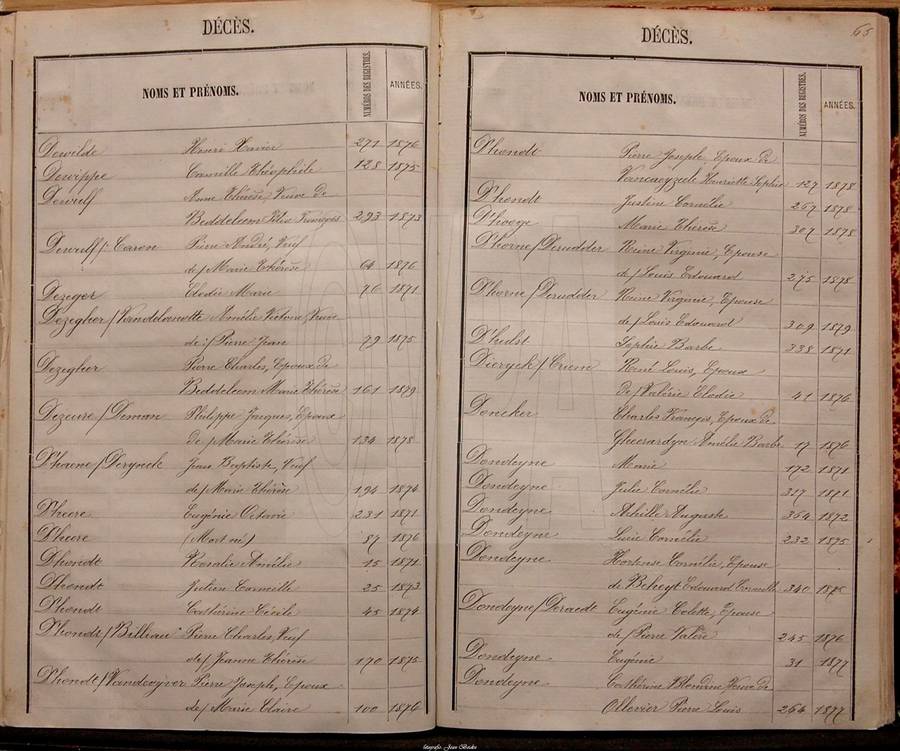 DÉCÈS.
NOMS ET PRÉNOMS. NUMÉROS DES REGISTRES. ANNÉES.
Dewilde Henri Xavier 271 1876
Dewippe Camille Théophile 128 1875
Dewulf Anne Thérèse, Veuve de
Beddeleem Félix François 293 1873
Dewulf/Caron Pierre André, Veuf
de/ Marie Thérèse 64 1876
Dezeger Elodie Marie 76 1871
Dezegher/Vandelanotte Amélie Victoire, Veuve
de/ Pierre Jean 79 1875
Dezegher Pierre Charles, Epoux de
Beddeleem Marie Thérèse 161 1879
Dezeure/Deman Philippe Jacques, Epoux
de/ Marie Thérèse 134 1878
D'haene/Derynck Jean Baptiste, Veuf
de/ Marie Thérèse 194 1874
D'heere Eugénie Octavie 231 1871
D'heere (Mort né) 87 1876
Dhondt Rosalie Amélie 15 1871
D'hondt Julien Camille 25 1873
D'hondt Cathérine Cécile 45 1874
D'hondt/Billiau Pierre Charles, Veuf
de/ Jeanne Thérèse 170 1875
D'hondt/Vandewyver Pierre Joseph, Epoux
de/ Marie Claire 100 1876
DÉCÈS. 65
NOMS ET PRÉNOMS. NUMÉROS DES REGISTRES. ANNÉES.
D'hondt Pierre Joseph, Epoux de
Henriette Sophie 127 1878
D'hondt Justine Cornélie 267 1878
D'hooge Marie Thérèse 307 1878
D'horne/Derudder Reine Virginie, Epouse
de/ Louis Edouard 275 1878
D'horne/Derudder Reine Virginie, Epouse
de/ Louis Edouard 309 1879
D'hulst Sophie Barbe 338 1871
Dieryck/ René Louis, Epoux
de/ Valérie Elodie 41 1876
Doncker Charles François, Epoux de
Gheerardyn Amélie Barbe 17 1876
Dondeyne Marie 172 1871
Dondeyne Julie Cornélie 317 1871
Dondeyne Achille Auguste 354 1872
Dondeyne Lucie Cornélie 232 1875
Dondeyne Hortense Cornélie, Epouse
de Beheyt Edouard Corneille 340 1875
Dondeyne/Deraedt Eugénie Colette, Epouse
de/ Pierre Valère 245 1876
Dondeyne Eugénie 31 1877
Dondeyne Cathérine Blondine Veuve de
Ollevier Pierre Louis 264 1877
fotografie: Jean Beeckx